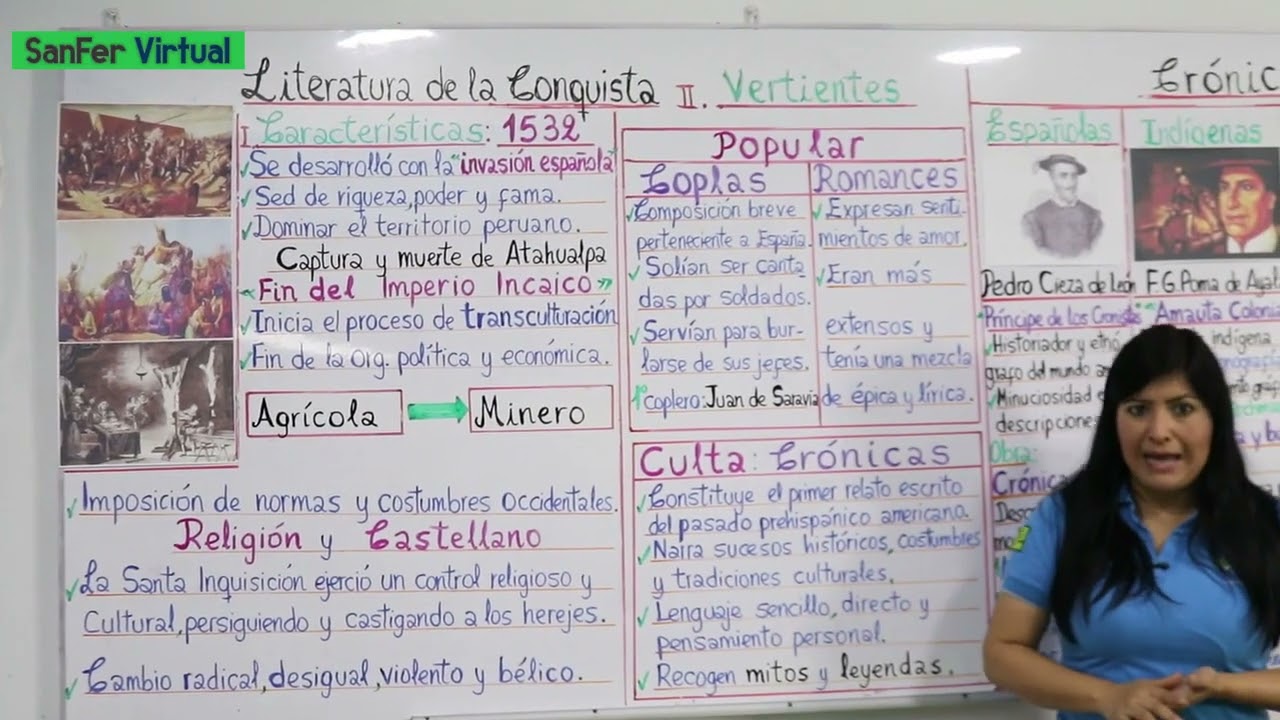 SanFer Virtual
Literatura de la Conquista
I. Características: 1532
Se desarrolló con la "invasión española"
Sed de riqueza, poder y fama.
Dominar el territorio peruano.
Captura y muerte de Atahualpa
"Fin del Imperio Incaico"
Inicia el proceso de transculturación
Fin de la org. política y económica.
Agrícola → Minero
Imposición de normas y costumbres occidentales.
Religión y Castellano
La Santa Inquisición ejerció un control religioso y
Cultural, persiguiendo y castigando a los herejes.
Cambio radical, desigual, violento y bélico.
II. Vertientes
Popular
Coplas
Composición breve
perteneciente a España.
Solían ser canta
das por soldados.
Servían para bur-
larse de sus jefes.
1° coplero: Juan de Saravia
Romances
Expresan senti-
mientos de amor.
Eran más
extensos y
tenía una mezcla
de épica y lírica.
Culta: Crónicas
Constituye el primer relato escrito
del pasado prehispánico americano.
Narra sucesos históricos, costumbres
y tradiciones culturales.
Lenguaje sencillo, directo y
pensamiento personal.
Recogen mitos y leyendas.
Crónic
Españolas
Pedro Cieza de León
"Príncipe de los Cronistas"
Historiador y etnó
grafo del mundo
Minuciosidad
descripcione
Obra:
Crónica
Indígenas
F.G. Poma de Ayal
"Amauta Colonia
indígena